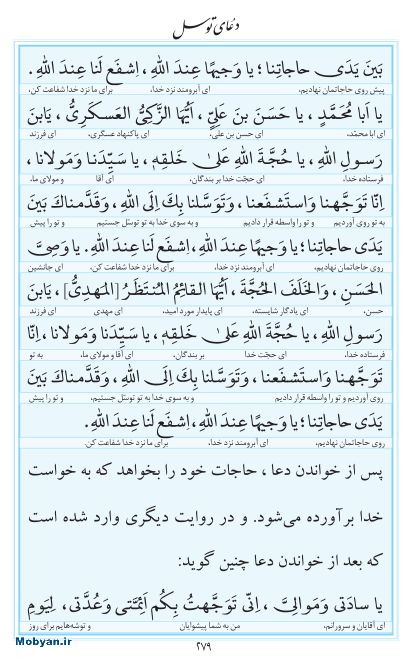 دعای توسل
بَینَ یَدَی حاجاتِنا ؛ یا وَجیهًا عِندَ اللهِ ، اِشفَع لَنا عِندَ اللهِ .
پیش روی حاجاتمان نهادیم، ای آبرومند نزد خدا، برای ما نزد خدا شفاعت کن.
یا اَبا مُحَمَّدٍ ، یا حَسَنَ بنَ عَلِیٍّ ، اَیُّهَا الزَّکِیُّ العَسکَرِیُّ ، یَابنَ
ای ابا محمّد، ای حسن بن علی، ای پاکنهاد عسگری، ای فرزند
رَسولِ اللهِ ، یا حُجَّةَ اللهِ عَلیٰ خَلقِهِ ، یا سَیِّدَنا وَمَولانا ،
فرستاده خدا، ای حجّت خدا بر بندگان، ای آقا و مولای ما،
اِنّا تَوَجَّهنا وَاستَشفَعنا ، وَتَوَسَّلنا بِکَ اِلَی اللهِ ، وَقَدَّمناکَ بَینَ
به تو روی آوردیم و تو را واسطه قرار دادیم و به سوی خدا به تو توسّل جستیم و تو را پیش
یَدَی حاجاتِنا ؛ یا وَجیهًا عِندَ اللهِ ، اِشفَع لَنا عِندَ اللهِ . یا وَصِیَّ
روی حاجاتمان نهادیم، ای آبرومند نزد خدا، برای ما نزد خدا شفاعت کن. ای جانشین
الحَسَنِ ، وَالخَلَفَ الحُجَّةَ ، اَیُّهَا القائِمُ المُنتَظَرُ [المَهدِیُّ] ، یَابنَ
حسن، ای یادگار شایسته، ای پایدار مورد امید، ای مهدی ای فرزند
رَسولِ اللهِ ، یا حُجَّةَ اللهِ عَلیٰ خَلقِهِ ، یا سَیِّدَنا وَمَولانا ، اِنّا
فرستاده خدا، ای حجّت خدا بر بندگان، ای آقا و مولای ما، به تو
تَوَجَّهنا وَاستَشفَعنا ، وَتَوَسَّلنا بِکَ اِلَی اللهِ ، وَقَدَّمناکَ بَینَ
روی آوردیم و تو را واسطه قرار دادیم و به سوی خدا به تو توسّل جستیم، و تو را پیش
یَدَی حاجاتِنا ؛ یا وَجیهًا عِندَ اللهِ ، اِشفَع لَنا عِندَ اللهِ .
روی حاجاتمان نهادیم، ای آبرومند نزد خدا، برای ما نزد خدا شفاعت کن.
پس از خواندن دعا ، حاجات خود را بخواهد که به خواست
خدا برآورده می‌شود. و در روایت دیگری وارد شده است
که بعد از خواندن دعا چنین گوید:
یا سادَتی وَمَوالِیَّ ، اِنّی تَوَجَّهتُ بِکُم اَئِمَّتی وَعُدَّتی ، لِیَومِ
ای آقایان و سرورانم، من به شما پیشوایان و توشه‌هایم برای روز
۲۷۹
Mobyan.ir